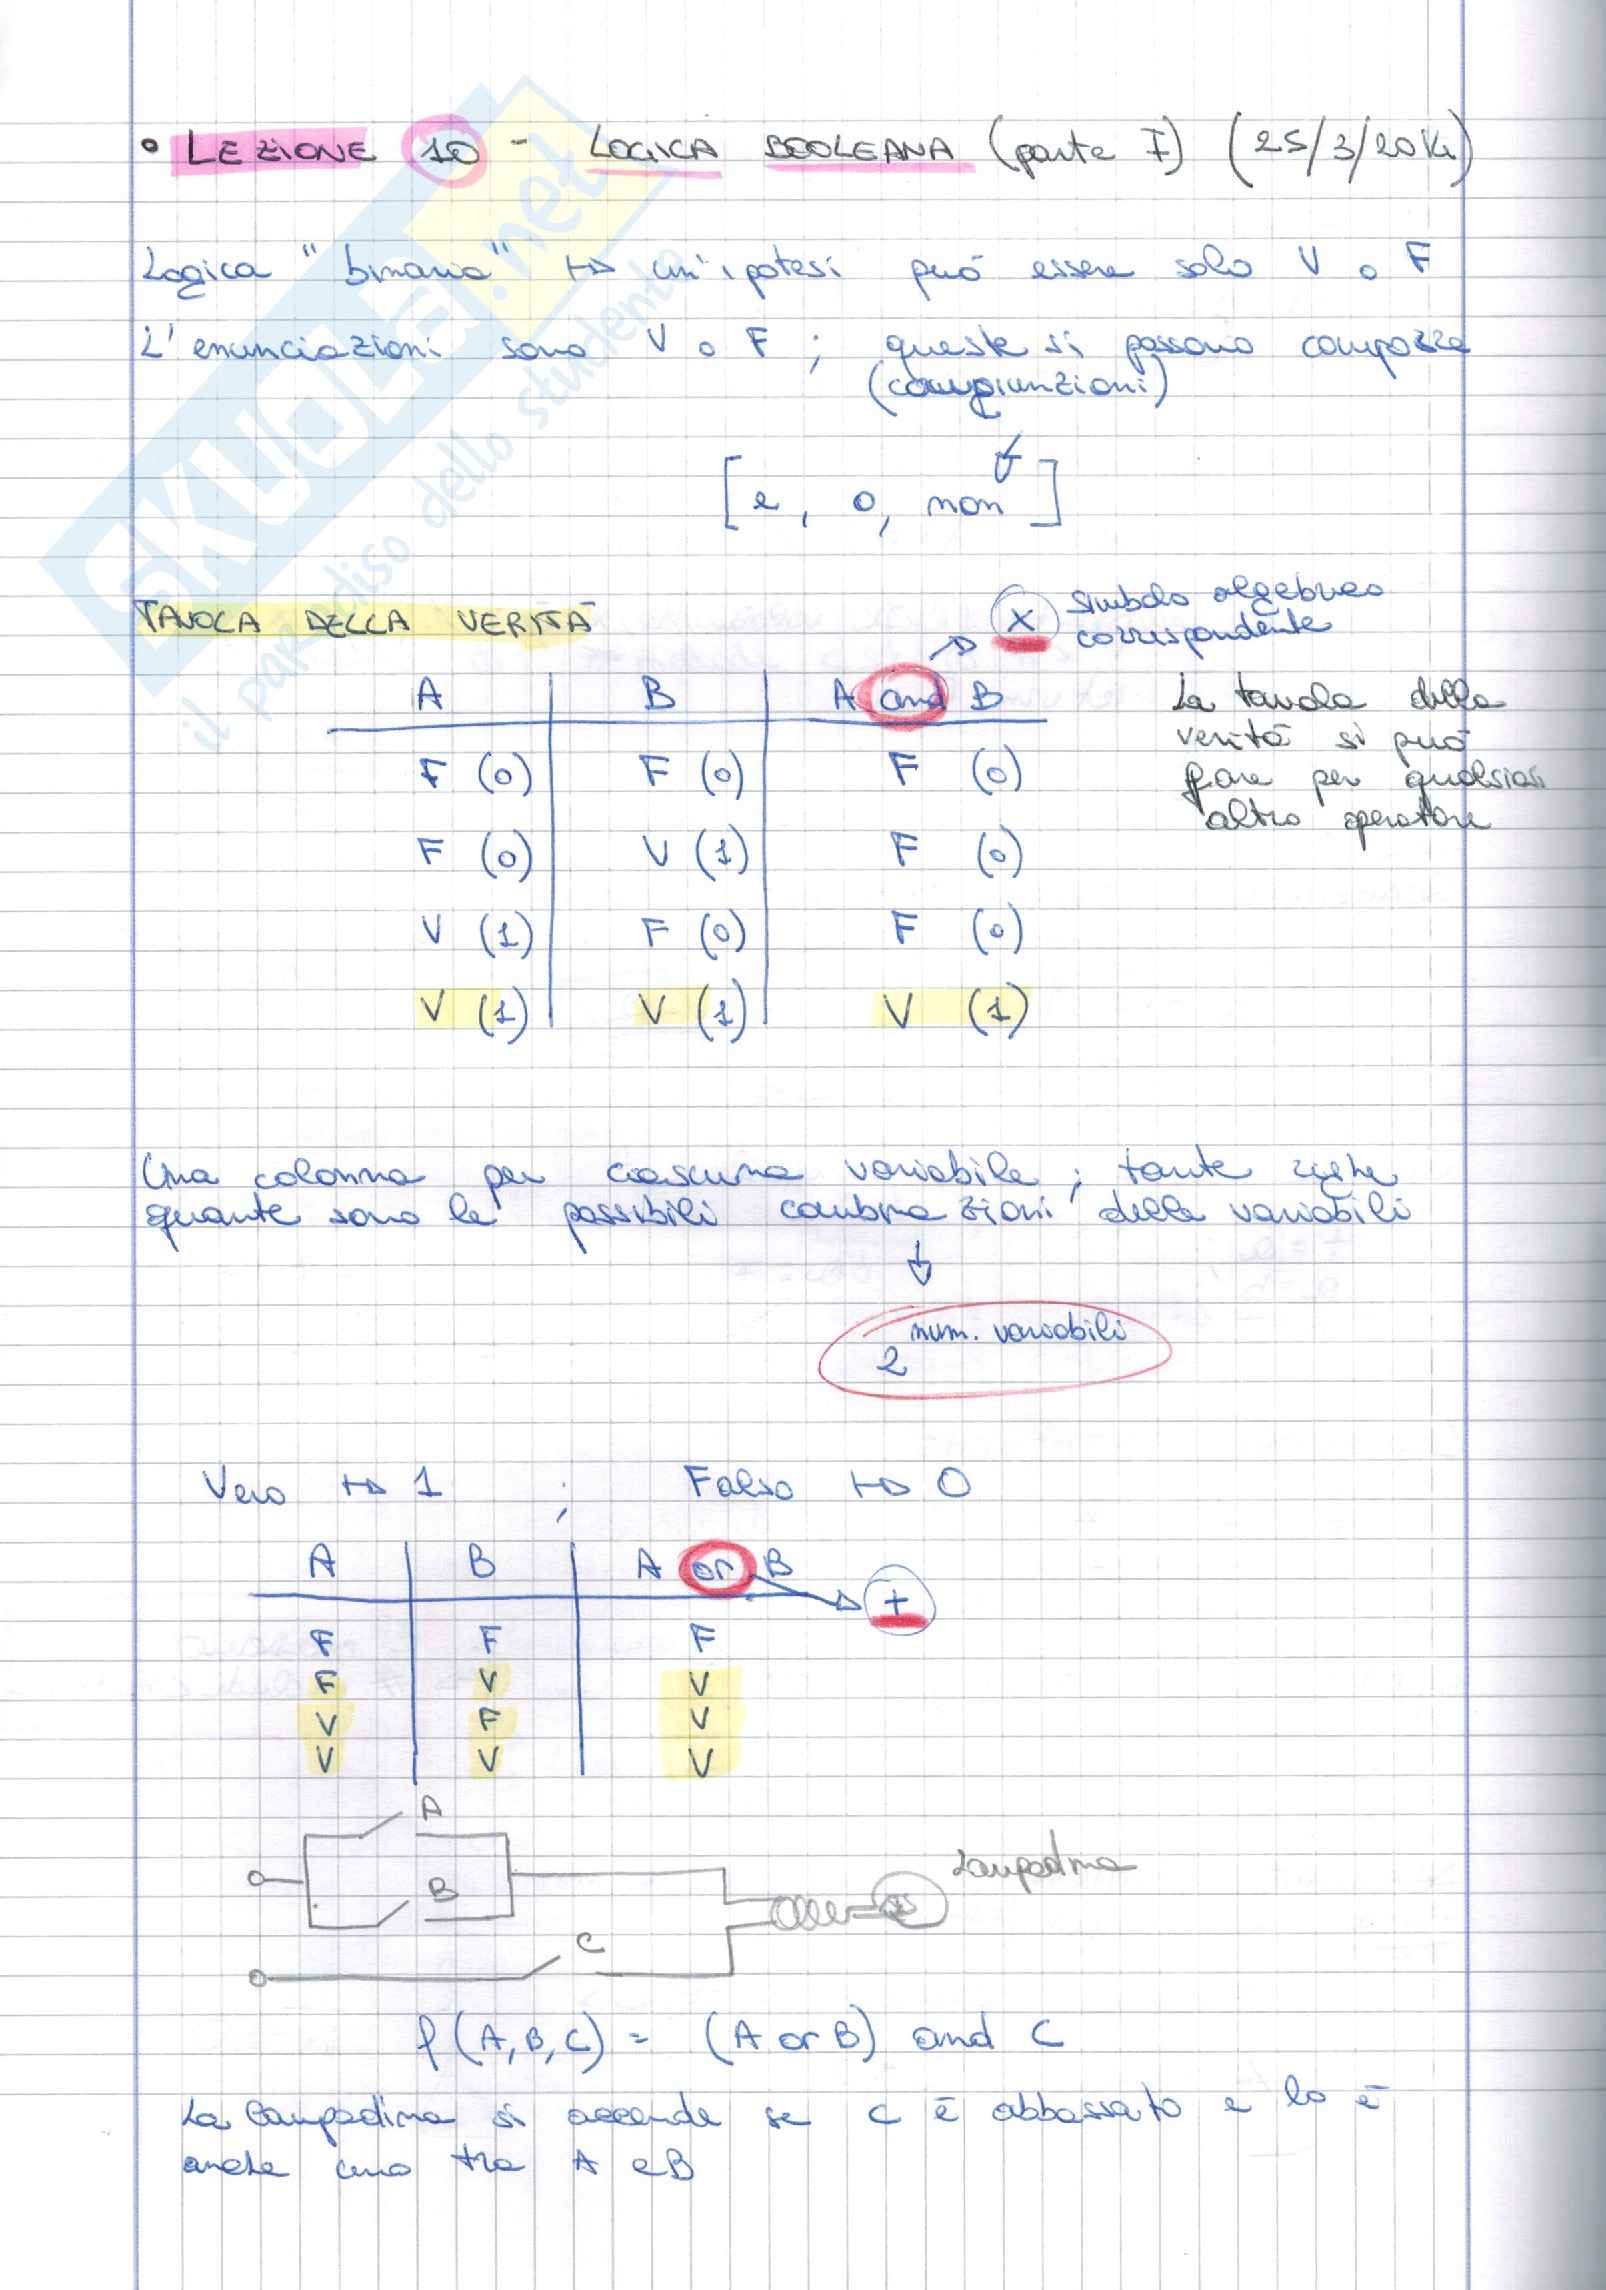 • LEZIONE 10 - LOGICA BOOLEANA (parte I) (25/3/2014)
Logica "binaria" ↦ un'ipotesi può essere solo V o F
L'enunciazioni sono V o F ; queste si possono comporre
(congiunzioni)
↓
[e, o, non]
TAVOLA DELLA VERITÀ
→ × simbolo algebrico
corrispondente
A | B | A and B
F (0) | F (0) | F (0)
F (0) | V (1) | F (0)
V (1) | F (0) | F (0)
V (1) | V (1) | V (1)
La tavola della
verità si può
fare per qualsiasi
altro operatore
Una colonna per ciascuna variabile ; tante righe
quante sono le possibili combinazioni delle variabili
↓
2^num. variabili
Vero ↦ 1 ; Falso ↦ 0
A | B | A or B → +
F | F | F
F | V | V
V | F | V
V | V | V
A
B
C
Lampadina
f(A,B,C) = (A or B) and C
La lampadina si accende se C è abbassato e lo è
anche uno tra A e B
SKUOLA.net
il paradiso dello studente